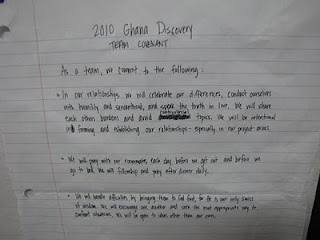 2010 Ghana Discovery
TEAM COVENANT
As a team, we commit to the following:
• In our relationships we will celebrate our differences, conduct ourselves
with humility and servanthood, and speak the truth in love. We will share
each others burdens and avoid controversial topics. We will be intentional
in forming and establishing our relationships - especially in our project areas.
• We will pray with our roommates each day before we get out and before we
go to bed. We will fellowship and pray after dinner daily.
• We will handle difficulties by bringing them to God first, for He is our only source
of wisdom. We will encourage one another and seek the most appropriate way to
confront situations. We will be open to ideas other than our own.